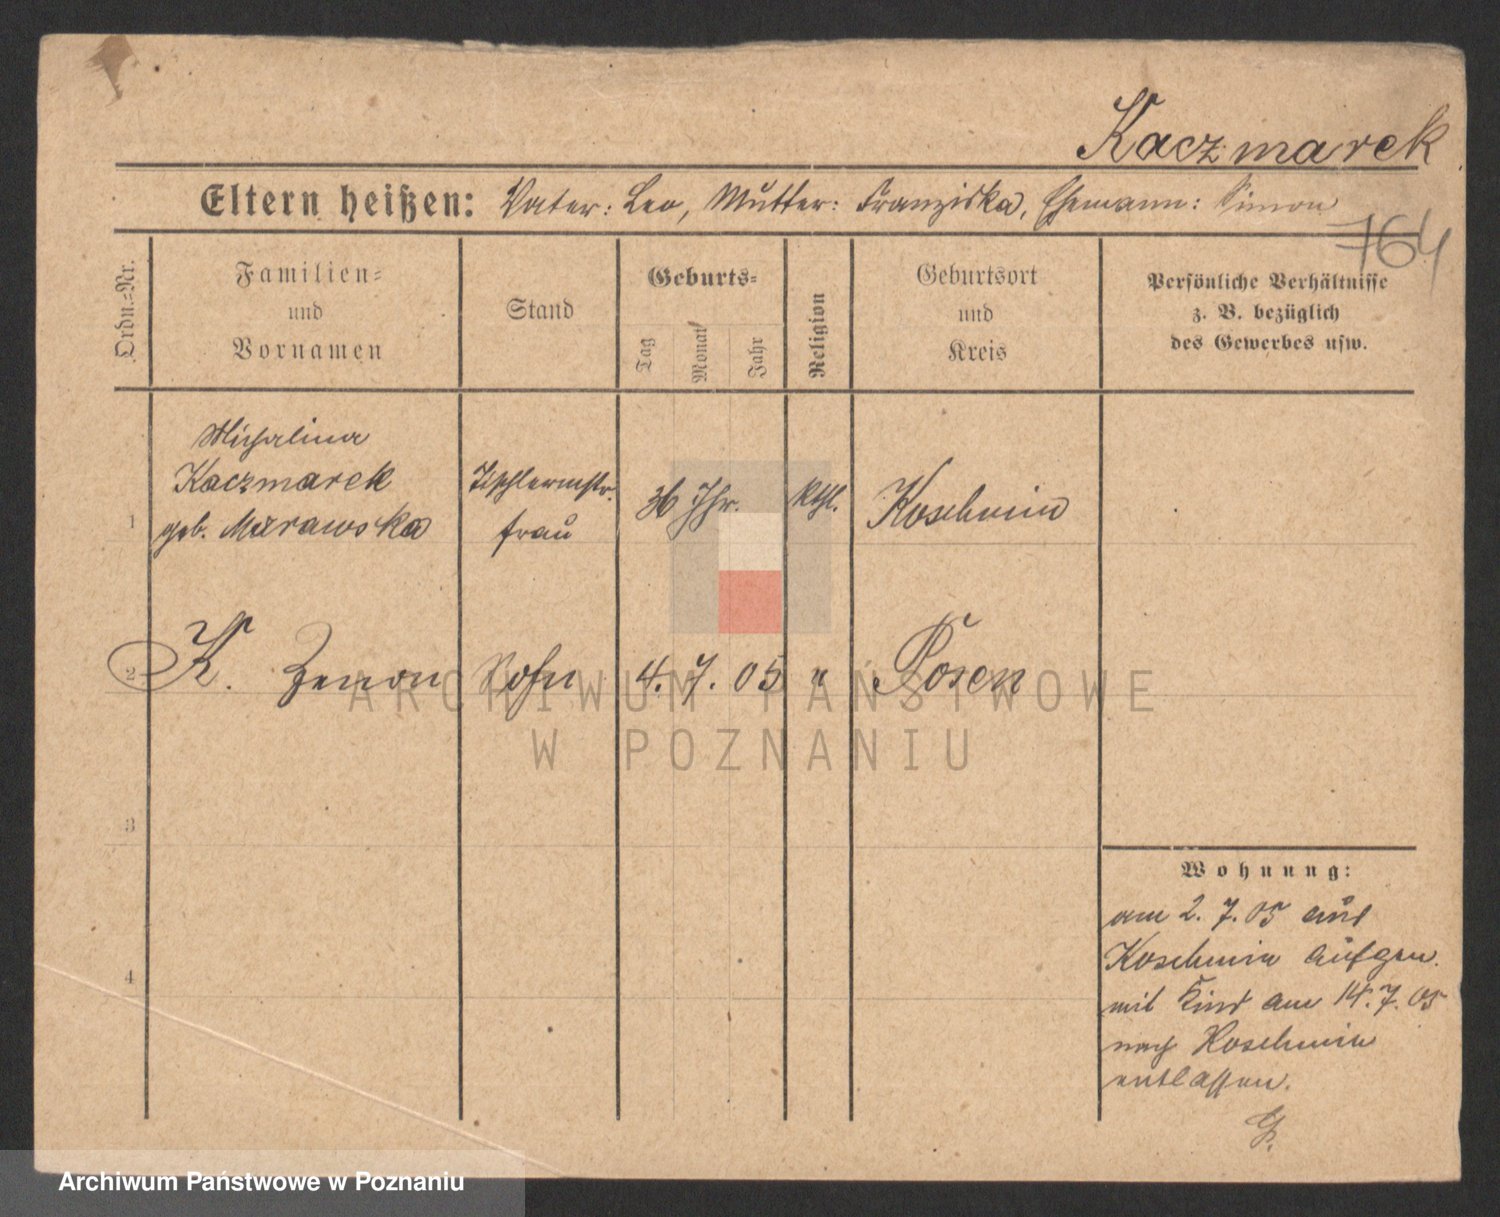 Kaczmarek
Eltern heißen: Vater: Leo, Mutter: Franziska, Ehemann: Simon
764
Ordn.=Nr.
Familien=
und
Vornamen
Stand
Geburts=
Tag
Monat
Jahr
Religion
Geburtsort
und
Kreis
Persönliche Verhältnisse
z. B. bezüglich
des Gewerbes usw.
1
Michalina
Kaczmarek
geb. Marawska
Tischlermstr.
frau
36 Jhr.
kthl.
Koschmin
2
K. Zenon
Sohn
4. 7. 05
"
Posen
ARCHIWUM PAŃSTWOWE
W POZNANIU
3
4
Wohnung:
am 2. 7. 05 aus
Koschmin aufgen.
mit Kind am 14. 7. 05
nach Koschmin
entlassen.
Archiwum Państwowe w Poznaniu